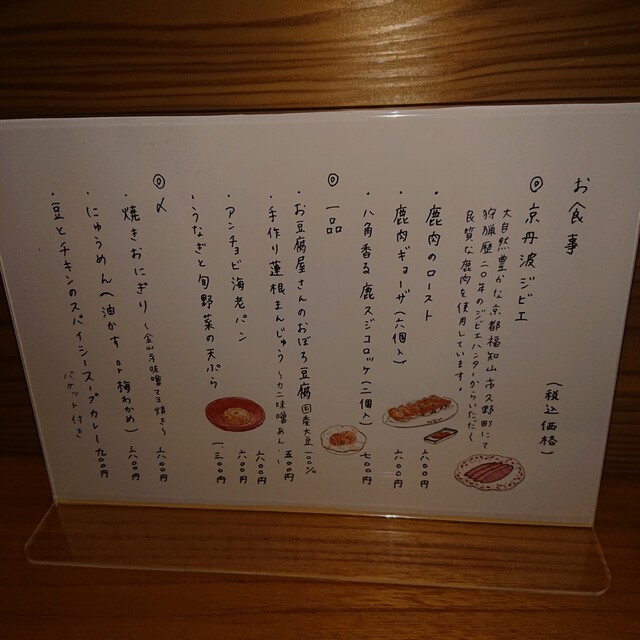 お食事
（税込価格）
◎京丹波ジビエ
大自然豊かな京都福知山市夜久野町にて
狩猟歴二〇年のジビエハンターからいただく
良質な鹿肉を使用しています。
・鹿肉のロースト 六〇〇円
・鹿肉ギョーザ（六個入） 六〇〇円
・八角香る鹿スジコロッケ（二個入） 七〇〇円
◎一品
・お豆腐屋さんのおぼろ豆腐 国産大豆100% 五〇〇円
・手作り蓮根まんじゅう〜カニ味噌あん〜 六〇〇円
・アンチョビ海老パン 六〇〇円
・うなぎと旬野菜の天ぷら 一、三〇〇円
◎〆
・焼きおにぎり〜金山寺味噌マヨ焼き〜 六〇〇円
・にゅうめん（油かすor梅わかめ） 六〇〇円
・豆とチキンのスパイシースープカレー 九〇〇円
バケット付き